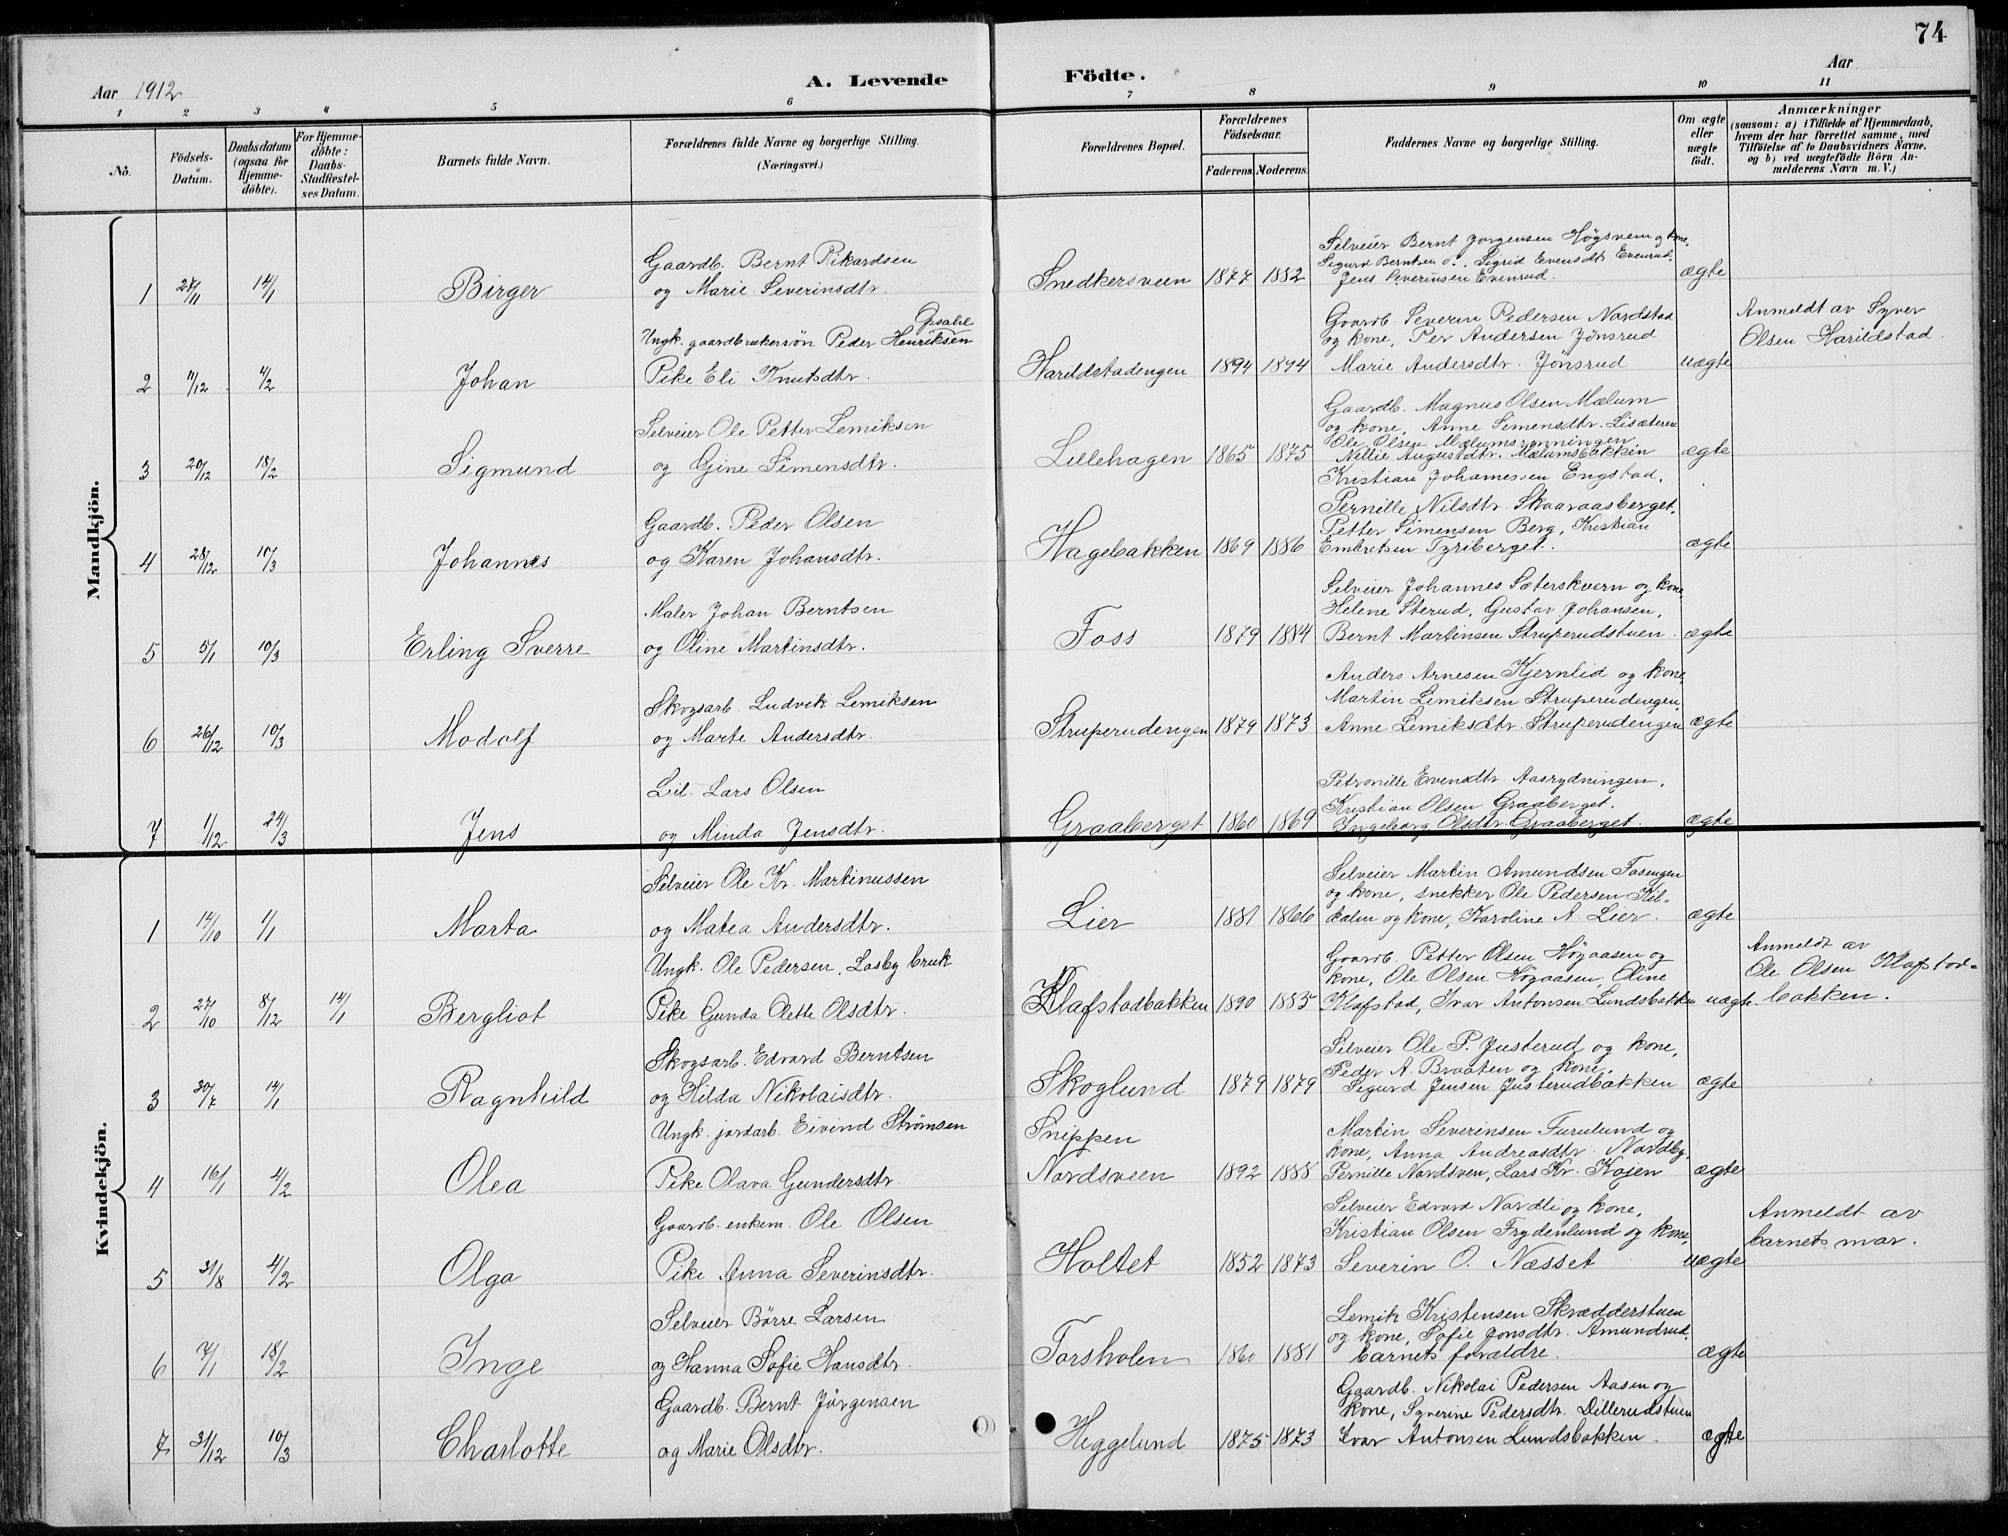 74
Aar 1912
A. Levende Födte.
Aar
1 2 3 4 5 6 7 8 9 10 11
No.
Födsels-Datum.
Daabsdatum (ogsaa for Hjemme-döbte).
For Hjemme-döbte: Daabs-Stadfæstel-ses Datum.
Barnets fulde Navn.
Forældrenes fulde Navne og borgerlige Stilling. (Næringsvei.)
Forældrenes Bopæl.
Forældrenes Födselsaar.
Faderens. Moderens.
Faddernes Navne og borgerlige Stilling.
Om ægte eller uægte födt.
Anmærkninger (saasom: a) i Tilfælde af Hjemmedaab, hvem der har forrettet samme, med Tilföielse af to Daabsvidners Navne, og b) ved uægtefödte Börn An-melderens Navn m. V.)
Mandkjön.
1 27/11 14/1 Birger
Gaardb. Bernt Rikardsen
og Marie Severinsdtr.
Snedkersveen 1877 1882
Selveier Bernt Jørgensen Høgsveen og kone,
Sigurd Berntsen o., Sigrid Evensdtr Evenrud,
Jens Severinsen Evenrud.
ægte
2 11/12 4/2 Johan
Opsahl
Ungk. gaardbrukersøn Peder Henriksen
Pike Eli Knutsdtr.
Harildstadengen 1894 1894
Gaardb. Severin Pedersen Nordstad
og kone, Per Andersen Jønsrud
Marie Andersdtr. Jønsrud
uægte
Anmeldt av Syver
Olsen Harildstad.
3 20/12 18/2 Sigmund
Selveier Ole Petter Lemiksen
og Gine Simensdtr.
Lillehagen 1865 1875
Gaardb. Magnus Olsen Mælum
og kone, Anne Simensdtr. Lisæteren
Ole Olsen Mælumsrønningen,
Nellie Augustdtr. Mælumsbakken
ægte
4 28/12 10/3 Johannes
Gaardb. Peder Olsen
og Karen Johansdtr.
Hagebakken 1869 1886
Kristian Johannessen Engstad,
Pernille Nilsdtr. Skaaraasberget,
Petter Simensen Berg, Kristian
Embretsen Tyriberget.
ægte
5 5/1 10/3 Erling Sverre
Maler Johan Berntsen
og Oline Martinsdtr.
Foss 1879 1884
Selveier Johannes Sæterskvern og kone,
Helene Sterud, Gustav Johansen,
Bernt Martinsen Struperudstuen.
ægte
6 26/12 10/3 Modolf
Skogsarb. Ludvik Lemiksen
og Marte Andersdtr.
Struperudengen 1879 1873
Anders Arnesen Kjernlid og kone,
Martin Lemiksen Struperudengen,
Anne Lemiksdtr. Struperudengen
ægte
7 1/12 24/3 Jens
Lars Olsen
og Minda Jensdtr.
Graaberget 1860 1869
Petronille Evensdtr. Aasrydningen,
Kristian Olsen Graaberget.
Ingeborg Olsdtr. Graaberget.
ægte
Kvindekjön.
1 14/10 1/1 Marta
Selveier Ole Kr. Martinussen
og Matea Andersdtr.
Lier 1881 1866
Selveier Martin Amundsen Fosengen
og kone, snekker Ole Pedersen Kil-
dalen og kone, Karoline A. Lier.
ægte
2 27/10 8/12 14/1 Bergliot
Ungk. Ole Pedersen, Losby bruk
Pike Gunda Olette Olsdtr.
Klafstadbakken 1890 1885
Gaardb. Petter Olsen Høgaasen og
kone, Ole Olsen Høgaasen, Oline
Klafstad, Ivar Antonsen Lundsbakken
uægte.
Anmeldt av
Ole Olsen Klafstad-
bakken.
3 30/7 14/1 Ragnhild
Skogsarb. Edvard Berntsen
og Hilda Nikolaisdtr.
Skoglund 1879 1879
Selveier Ole P. Justerud og kone,
Peder A. Braaten og kone,
Sigurd Jensen Justerudbakken
ægte
4 16/1 4/2 Olea
Ungk. jordarb. Eivind Strømsen
Pike Olava Gundersdtr.
Snippen
Nordsveen 1892 1888
Martin Severinsen Furulund og
kone, Anna Andreasdtr. Nordby,
Pernille Nordsven, Lars Kr. Kojen
ægte
5 31/8 4/2 Olga
Gaardb. enkem. Ole Olsen
Pike Anna Severinsdtr.
Holtet 1852 1873
Selveier Edvard Nordli og kone,
Kristian Olsen Frydenlund og kone,
Severin O. Næsset
uægte
Anmeldt av
barnets mor.
6 7/1 18/2 Inge
Selveier Børre Larsen
og Hanna Sofie Hansdtr.
Torsholen 1860 1881
Lemik Kristensen Skrædderstuen
og kone, Sofie Jonsdtr. Amundrud,
barnets forældre.
ægte
7 31/12 10/3 Charlotte
Gaardb. Bernt Jørgensen
og Marie Olsdtr.
Heggelund 1875 1873
Gaardb. Nikolai Pedersen Aasen og
kone, Syverine Pedersdtr. Dillerudstuen
Ivar Antonsen Lundsbakken.
ægte